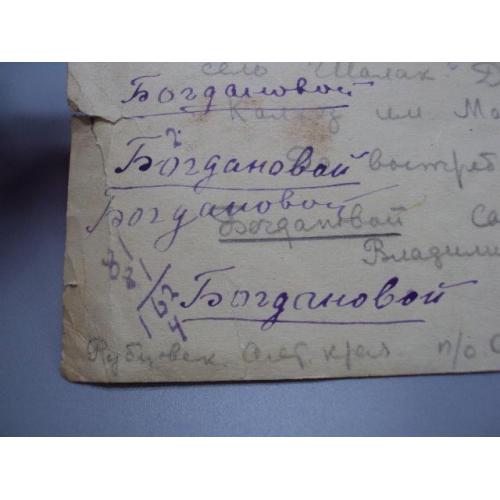 село "Шалак" Д
Богдановой
Колхоз им Ма
Богдановой
До востреб
Богдановой
Богдановой Са
Владими
Богдановой
Рубцовск. Алт. края. п/о С